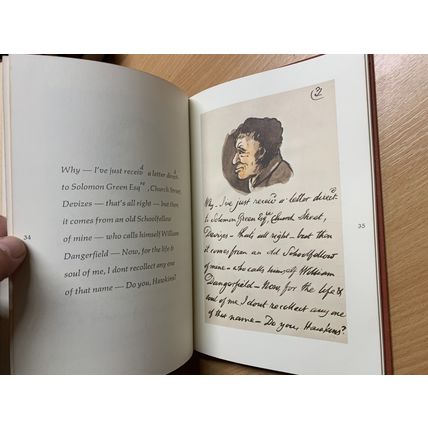 Why — I've just receiv^d a letter direct^d
to Solomon Green Esq^re, Church Street,
Devizes — that's all right — but then
it comes from an old Schoolfellow
of mine — who calls himself William
Dangerfield — Now, for the life &
soul of me, I dont recollect any one
of that name — Do you, Hawkins?
34
Why — I've just receiv^d a letter direct^d
to Solomon Green Esq^re, Church Street,
Devizes — that's all right — but then
it comes from an old Schoolfellow
of mine — who calls himself William
Dangerfield — Now, for the life &
soul of me I dont recollect any one
of that name — Do you, Hawkins?
35